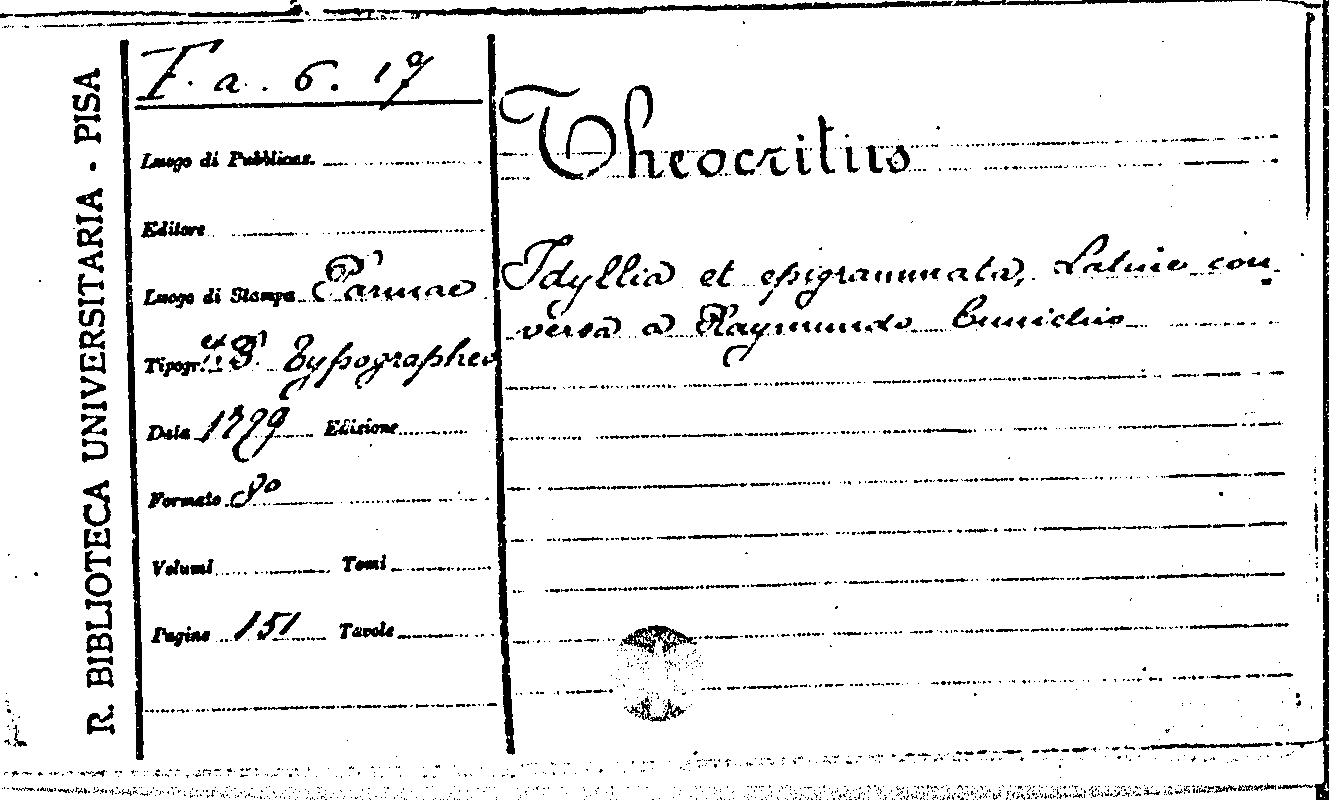 R. BIBLIOTECA UNIVERSITARIA - PISA
F. a. 6. 19
Luogo di Pubblicaz.
Editore
Luogo di Stampa Parmae
Tipogr. Typographeo
Data 1779 Edizione
Formato 8º
Volumi Tomi
Pagine 151 Tavole
Theocritus
Idyllia et epigrammata, Latine con-
versa a Raymundo Cunichio